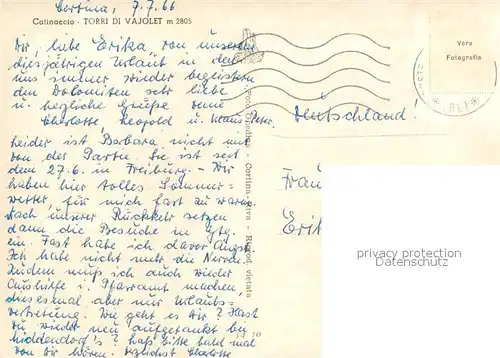 Cortina, 7.7.66
Catinaccio - TORRI DI VAJOLET m 2805
Dir, liebe Erika, von unserem
diesjährigen Urlaub in den
uns immer wieder begeisternden
Dolomiten sehr liebe
u. herzliche Grüße von
Charlotte, Leopold u. Klaus-Peter.
Leider ist Barbara nicht mit
von der Partie. Sie ist seit
dem 27.6. in Freiburg. - Wir
haben hier tolles Sommer-
wetter, für mich fast zu warm.
Nach unserer Rückkehr setzen
dann die Besuche in
ein. Fast habe ich davor Angst.
Ich habe nicht mehr die Nerven.
Zudem muß ich auch wieder
Aushilfe i. Pfarramt machen,
diesesmal aber nur Urlaubs-
vertretung. Wie geht es Dir? Hast
Du wieder neu aufgetankt bei
Middendorf's? Laß bitte bald mal
von Dir hören. Herzlichst Charlotte
Vera
Fotografia
Deutschland!
Frau
Erika
Foto Ghedina - Cortina
Riprod. vietata
privacy protection
Datenschutz